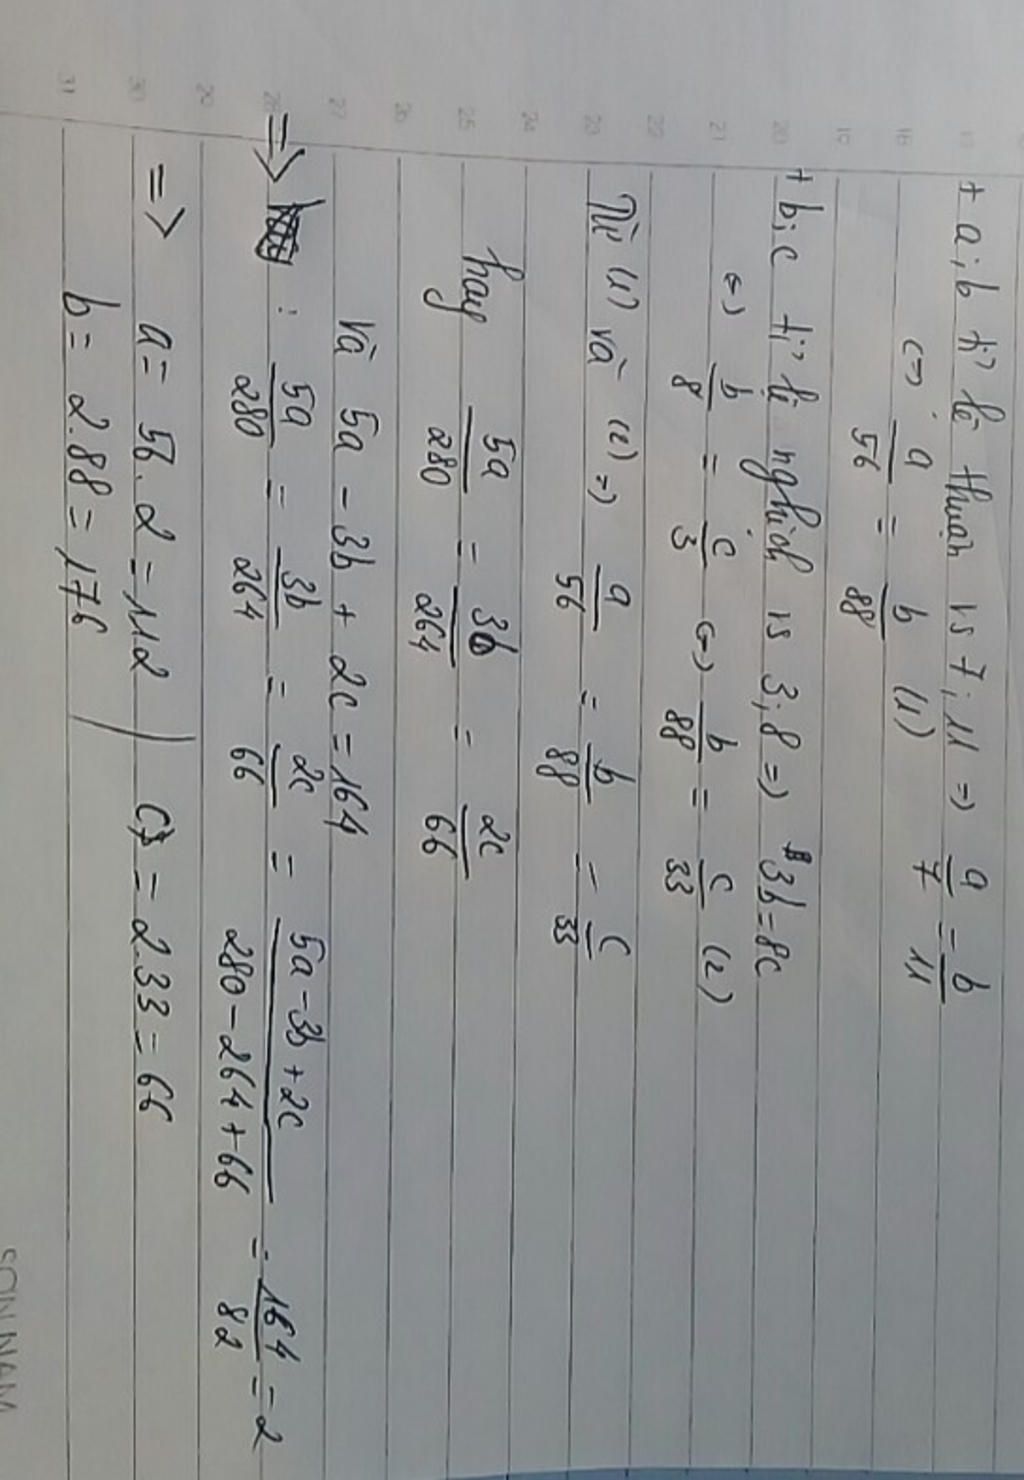 + a; b tỉ lệ thuận vs 7; 11 => a/7 = b/11
<=> a/56 = b/88 (1)
+ b; c tỉ lệ nghịch vs 3; 8 => 3b = 8c
<=> b/8 = c/3 <=> b/88 = c/33 (2)
Từ (1) và (2) => a/56 = b/88 = c/33
hay 5a/280 = 3b/264 = 2c/66
Và 5a - 3b + 2c = 164
=> : 5a/280 = 3b/264 = 2c/66 = 5a - 3b + 2c/280 - 264 + 66 = 164/82 = 2
=> a = 56.2 = 112 / c = 2.33 = 66
b = 2.88 = 176
17
18
19
20
21
22
23
24
25
26
27
28
29
30
31
SON NAM